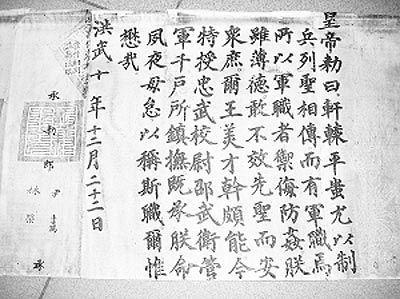 皇帝勑曰軒轅平蚩尤以制
兵列聖相傳而有軍職焉
所以軍職者禦侮防姦朕
雖薄德敢不效先聖而安
衆庶爾王美才幹頗能今
特授忠武校尉邵武衛管
軍千戶所鎮撫既承朕命
夙夜毋怠以稱斯職爾惟
懋哉
洪武十 年十二月二十二日
承勑郎
承